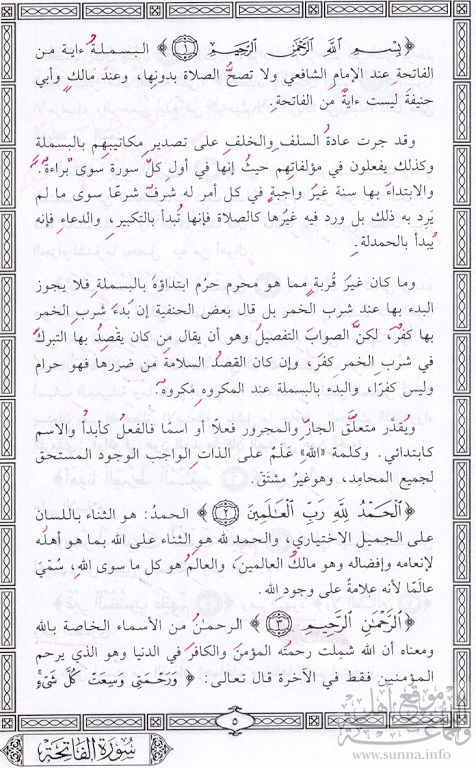 ﴿بِسْمِ اللَّهِ الرَّحْمَٰنِ الرَّحِيمِ ١﴾ البسملةُ ءاية من
الفاتحة عند الإمامِ الشافعي ولا تصحُّ الصلاة بدونِها، وعندَ مالكٍ وأبي
حنيفةَ ليست ءايةً منَ الفاتحة.
وقد جرت عادةُ السلف والخلف على تصديرِ مكاتيبِهم بالبسملة
وكذلك يفعلون في مؤلفاتِهم حيثُ إنها في أول كلّ سورة سوى براءةٌ،
والابتداءُ بها سنة غيرُ واجبةٍ في كل أمر له شرفٌ شرعًا سوى ما لم
يَرِد به ذلك بل ورد فيه غيرُها كالصلاة فإنها تُبدأ بالتكبير، والدعاءِ فإنه
يُبدأ بالحمدلة.
وما كان غيرَ قُربةٍ مما هو محرم حرُم ابتداؤه بالبسملةِ فلا يجوز
البدء بها عند شرب الخمر بل قال بعض الحنفية إن بدءَ شربِ الخمر
بها كفرٌ، لكنَّ الصوابَ التفصيلُ وهو أن يقال مِن كان يقْصِدُ بها التبركَ
في شرب الخمر كفَر، وإن كان القصدُ السلامةَ من ضررها فهو حرام
وليس كفرًا، والبدء بالبسملة عند المكروه مكروهٌ.
ويقدَّر متعلَّق الجارِّ والمجرورِ فعلًا أو اسمًا فالفعلُ كأبدأُ والاسم
كابتدائي. وكلمة «الله» عَلَمٌ على الذاتِ الواجبِ الوجودِ المستحق
لجميع المحامِد، وهو غيرُ مشتَقّ.
﴿الْحَمْدُ لِلَّهِ رَبِّ الْعَالَمِينَ ٢﴾ الحمدُ: هو الثناء باللسان
على الجميل الاختياري، والحمد لله هو الثناء على الله بما هو أهلُه
لإنعامه وإفضاله وهو مالكُ العالمين، والعالَم هو كل ما سوى الله، سُمّيَ
عالَمًا لأنه علامةٌ على وجودِ الله.
﴿الرَّحْمَٰنِ الرَّحِيمِ ٣﴾ الرحمـٰنُ من الأسماء الخاصة بالله
ومعناه أن الله شملت رحمتُه المؤمنَ والكافرَ في الدنيا وهو الذي يرحم
المؤمنين فقط في الآخرة قال تعالى: ﴿وَرَحْمَتِي وَسِعَتْ كُلَّ شَيْءٍ
٥
سُورَةُ الفَاتِحَة
موقع أهل السنة والجماعة
www.sunna.info